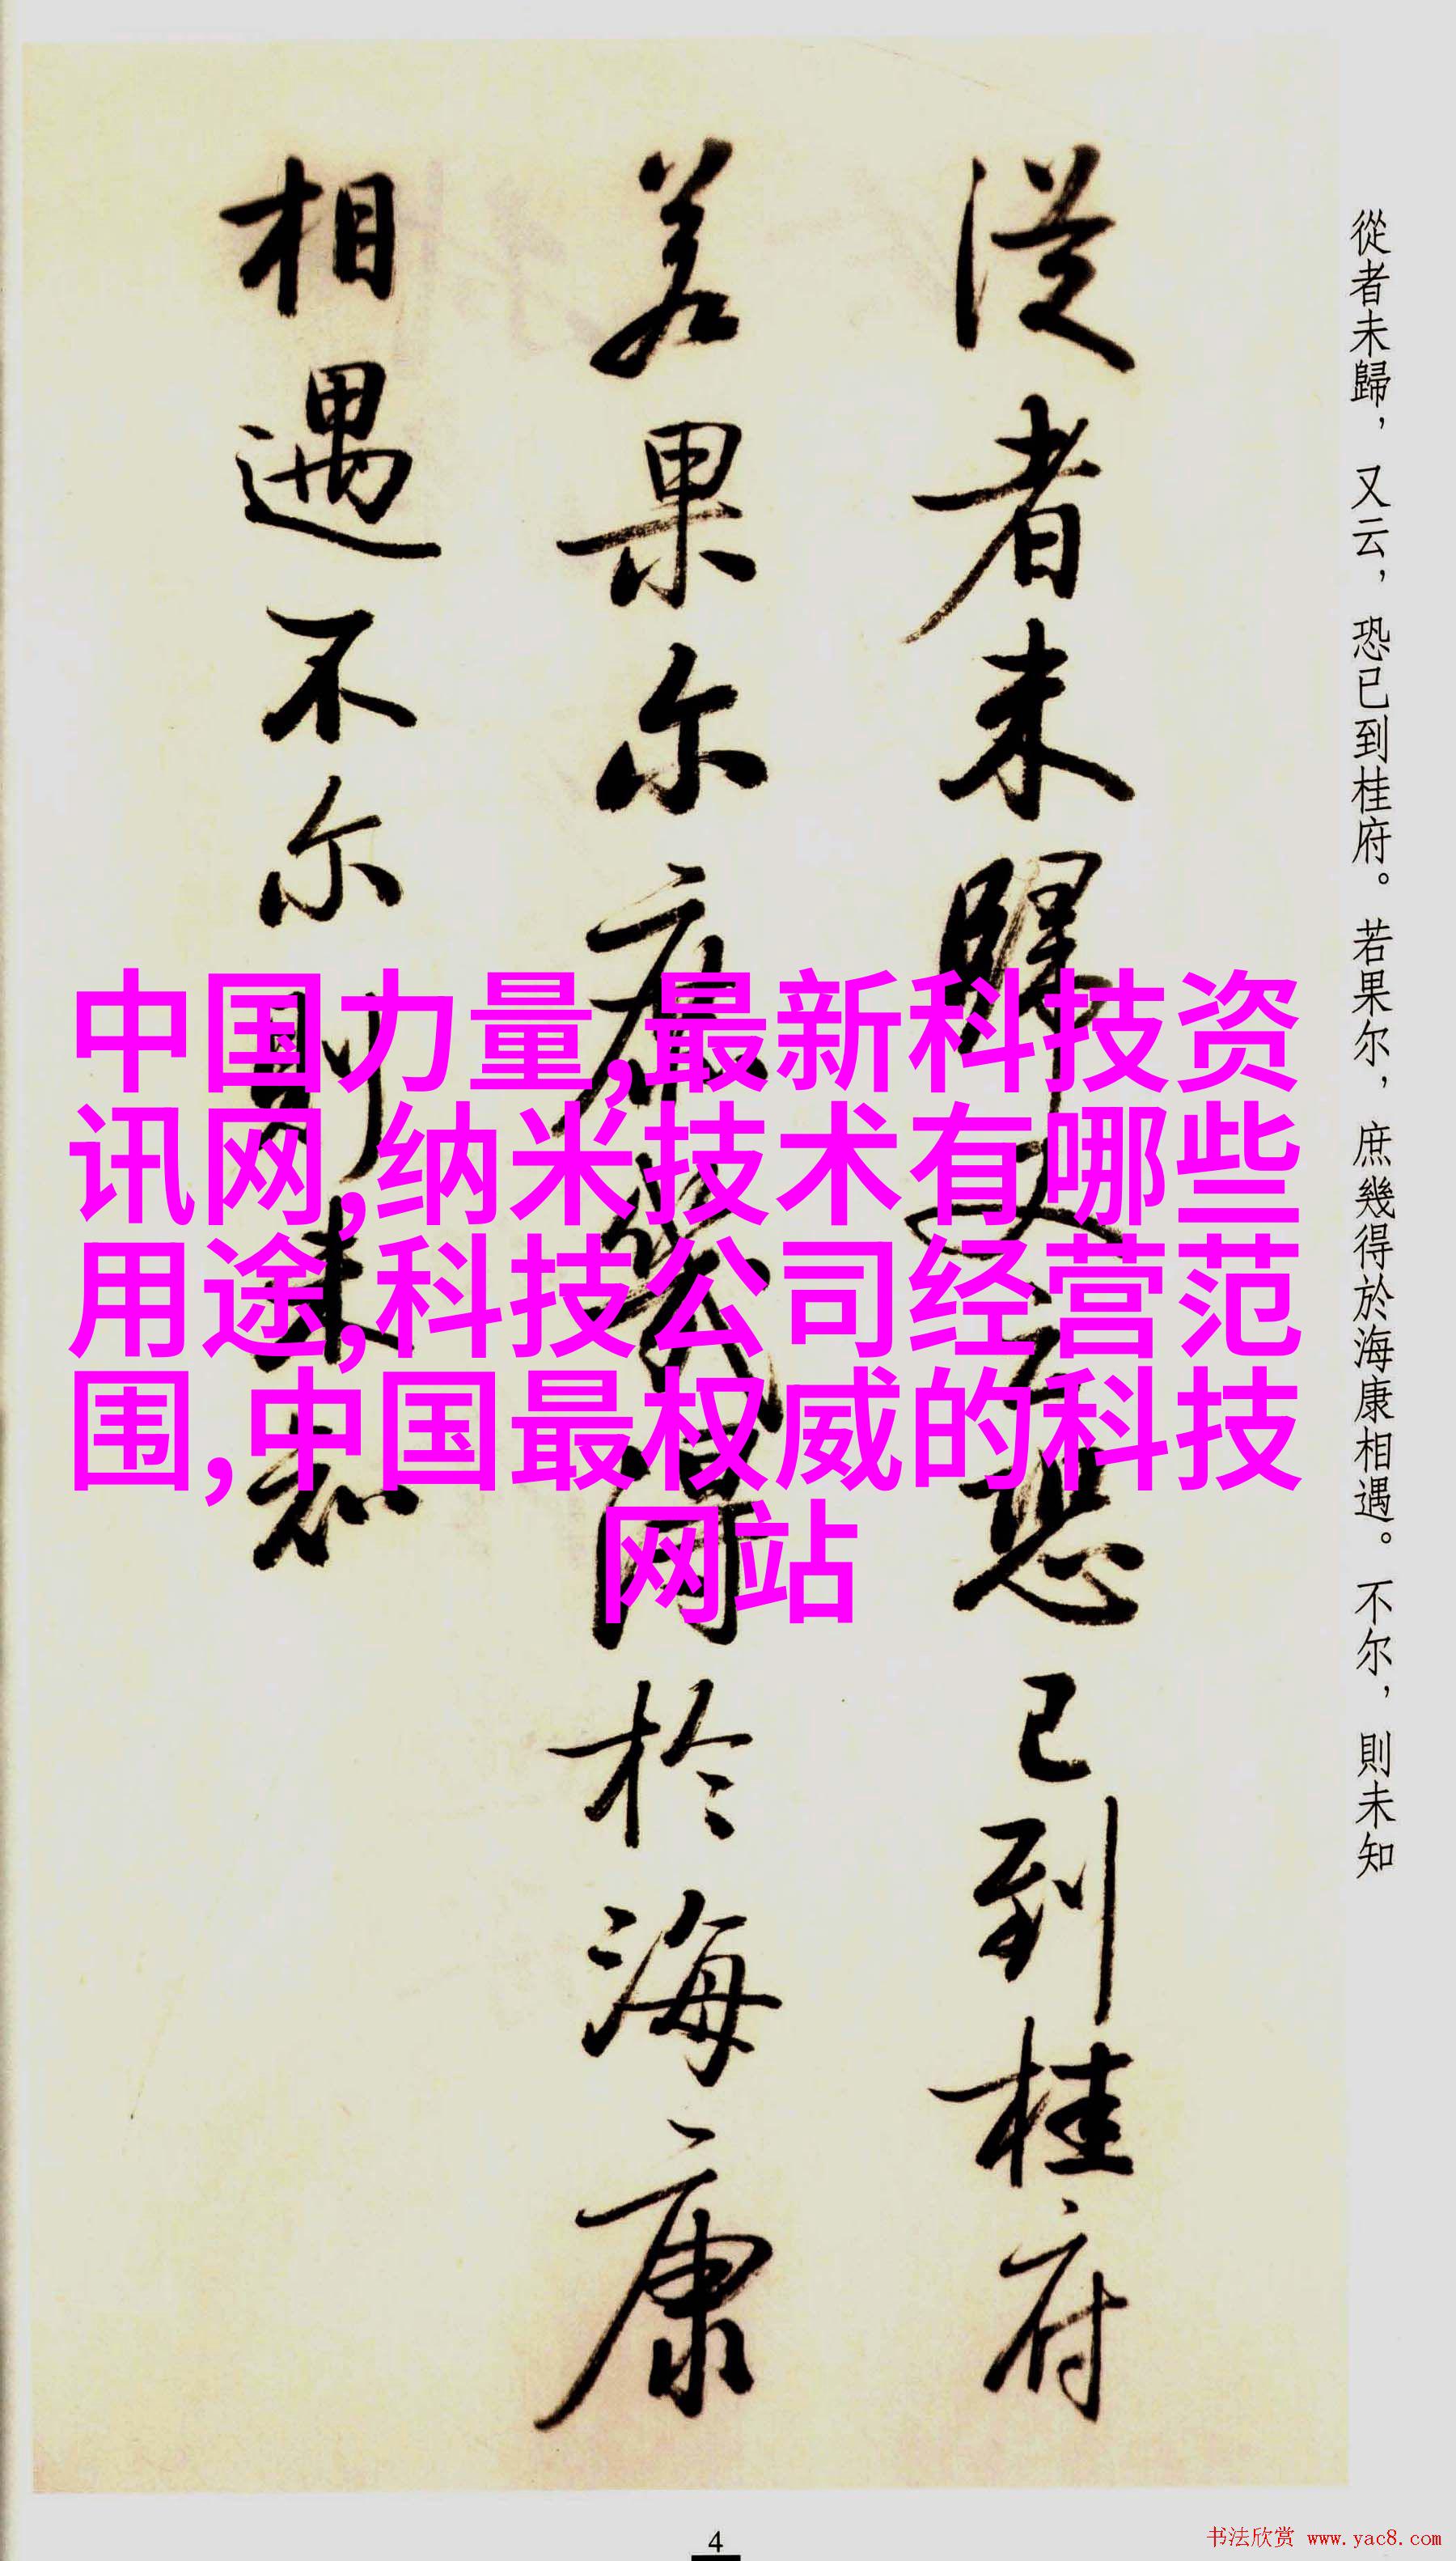 從者未歸，又云，恐已到桂府。若果尔，庶幾得於海康相遇。不尔，則未知
從者未歸又云恐已到桂府
若果尔庶幾得於海康
相遇不尔則未知
中国力量,最新科技资
讯网,纳米技术有哪些
用途,科技公司经营范
围,中国最权威的科技
网站
4
书法欣赏 www.yac8.com